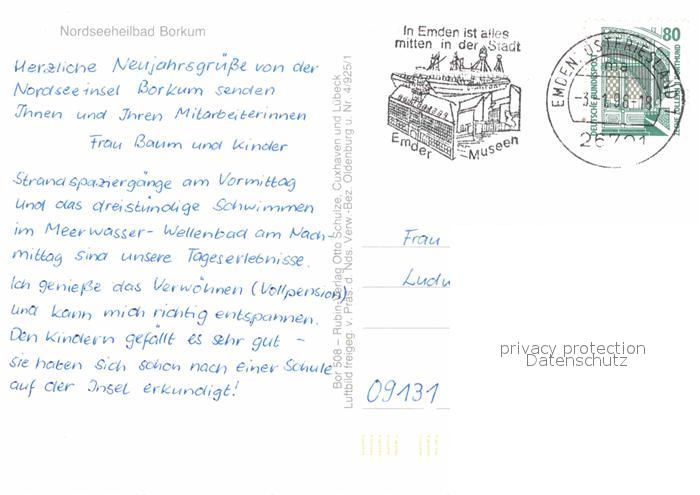 Nordseeheilbad Borkum
Herzliche Neujahrsgrüße von der
Nordseeinsel Borkum senden
Ihnen und Ihren Mitarbeiterinnen
Frau Baum und Kinder
Strandspaziergänge am Vormittag
und das dreistündige Schwimmen
im Meerwasser-Wellenbad am Nach-
mittag sind unsere Tageserlebnisse.
Ich genieße das Verwöhnen (Vollpension)
und kann mich richtig entspannen.
Den Kindern gefällt es sehr gut -
sie haben sich schon nach einer Schule
auf der Insel erkundigt!
Bor 508 – Rubin-Verlag Otto Schulze, Cuxhaven und Lübeck
Luftbild freigeg. v. Präs. d. Nds. Verw.-Bez. Oldenburg u. Nr. 4/925/1
In Emden ist alles
mitten in der Stadt
Emder Museen
EMDEN, OSTFRIESLAND
ma
26721
80
DEUTSCHE BUNDESPOST
Frau
Ludw
09131
privacy protection
Datenschutz